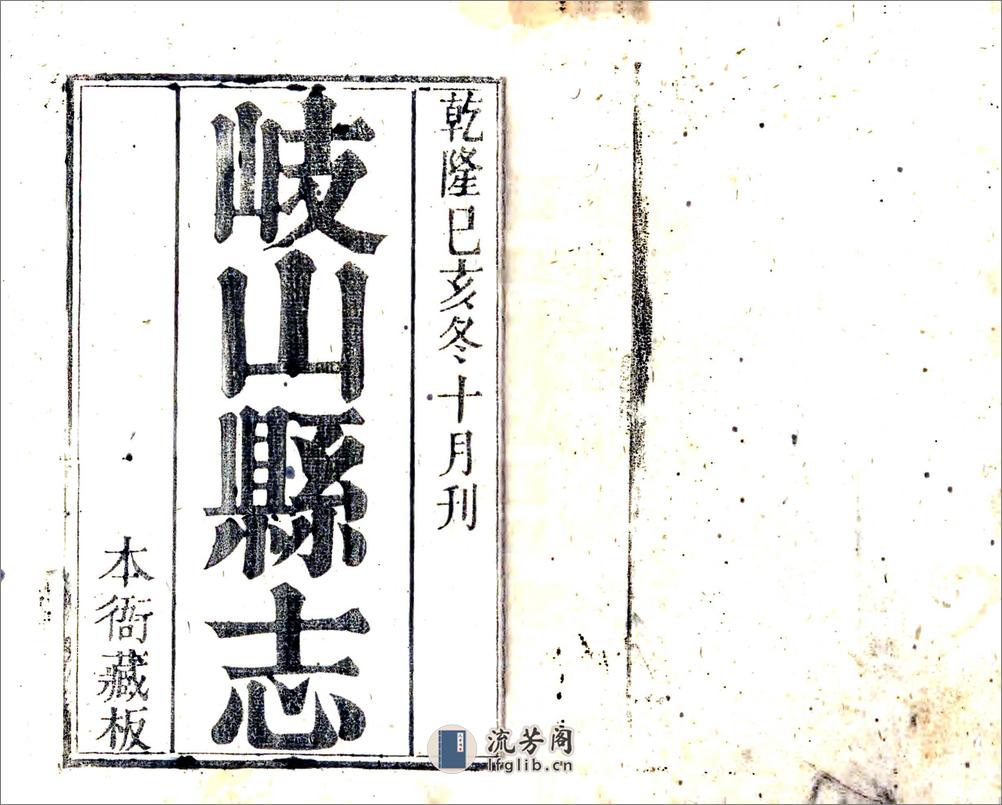 乾隆己亥冬十月刊
岐山縣志
本衙藏板
流芳阁
lfglib.cn